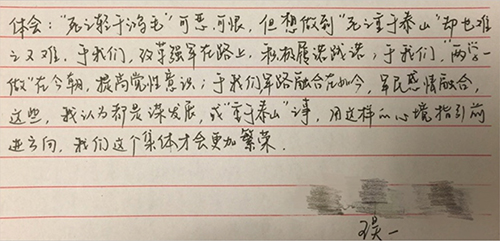 体会：“死之轻于鸿毛”可恶可恨，但想做到“死之重于泰山”却也难
之又难。于我们，改革强军在路上，积极履深战深；于我们，“两学一
做”在今朝，提高党性意识；于我们军路融合在如今，军民感情融合，
这些，我认为都是谋发展，成“重于泰山”事，用这样的心境指引前
进方向，我们这个集体才会更加繁荣．